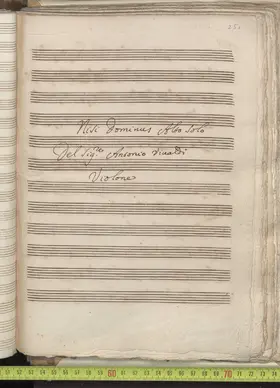 Nisi Dominus Alto Solo
Del Sig.re Antonio Vivaldi
Violone
60
70